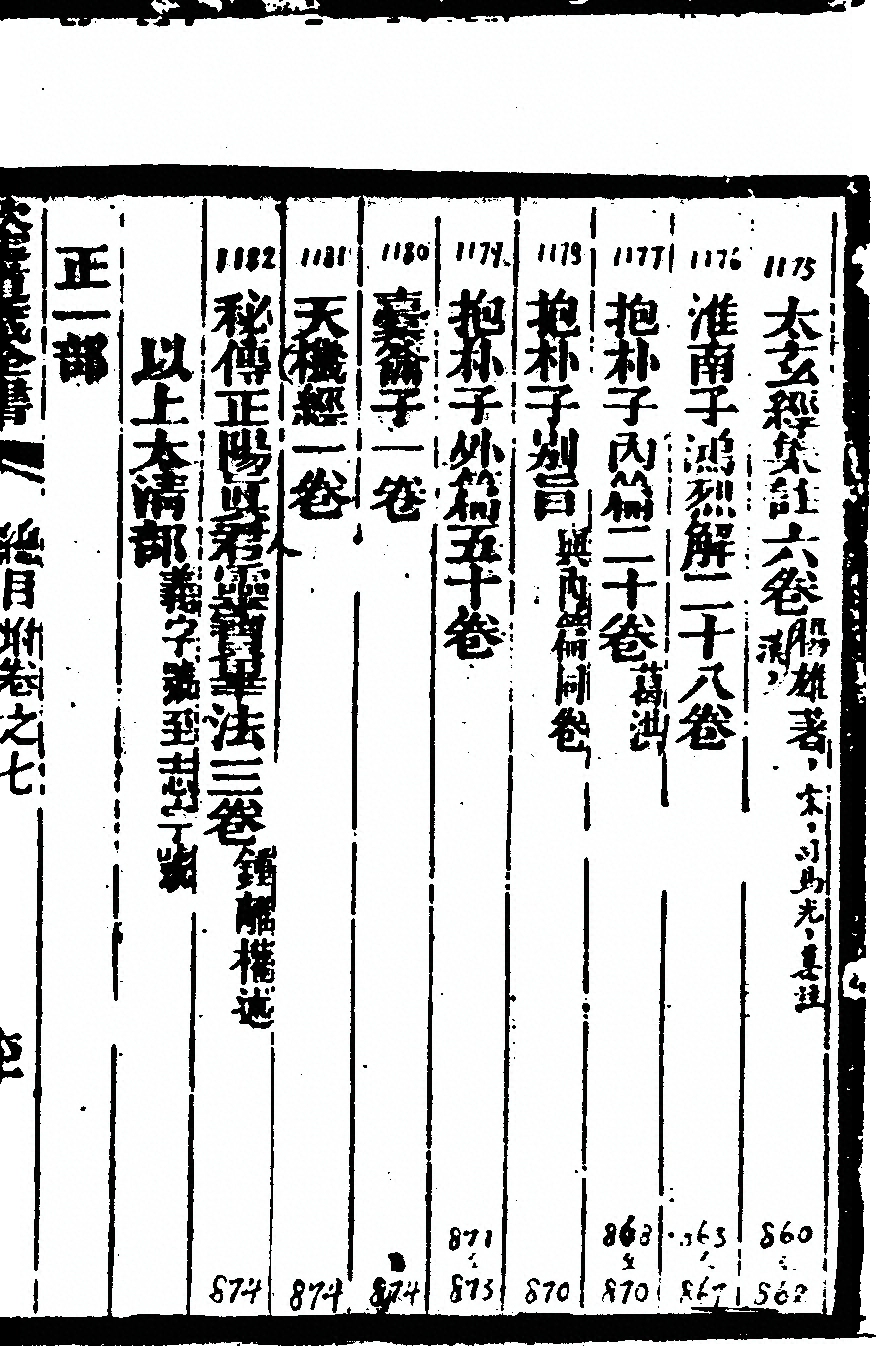 1175 太玄經集註六卷 漢，揚雄著，宋，司馬光，集註 860 862
1176 淮南子鴻烈解二十八卷 863 867
1177 抱朴子內篇二十卷 葛洪 868 870
1178 抱朴子別旨 與內篇同卷 870
1179 抱朴子外篇五十卷 871 873
1180 臺籥子一卷 874
1181 天機經一卷 874
1182 秘傳正陽眞人君靈寶畢法三卷 鍾離權述 874
以上太清部 義字號至志字號
正一部
總目 卷之七